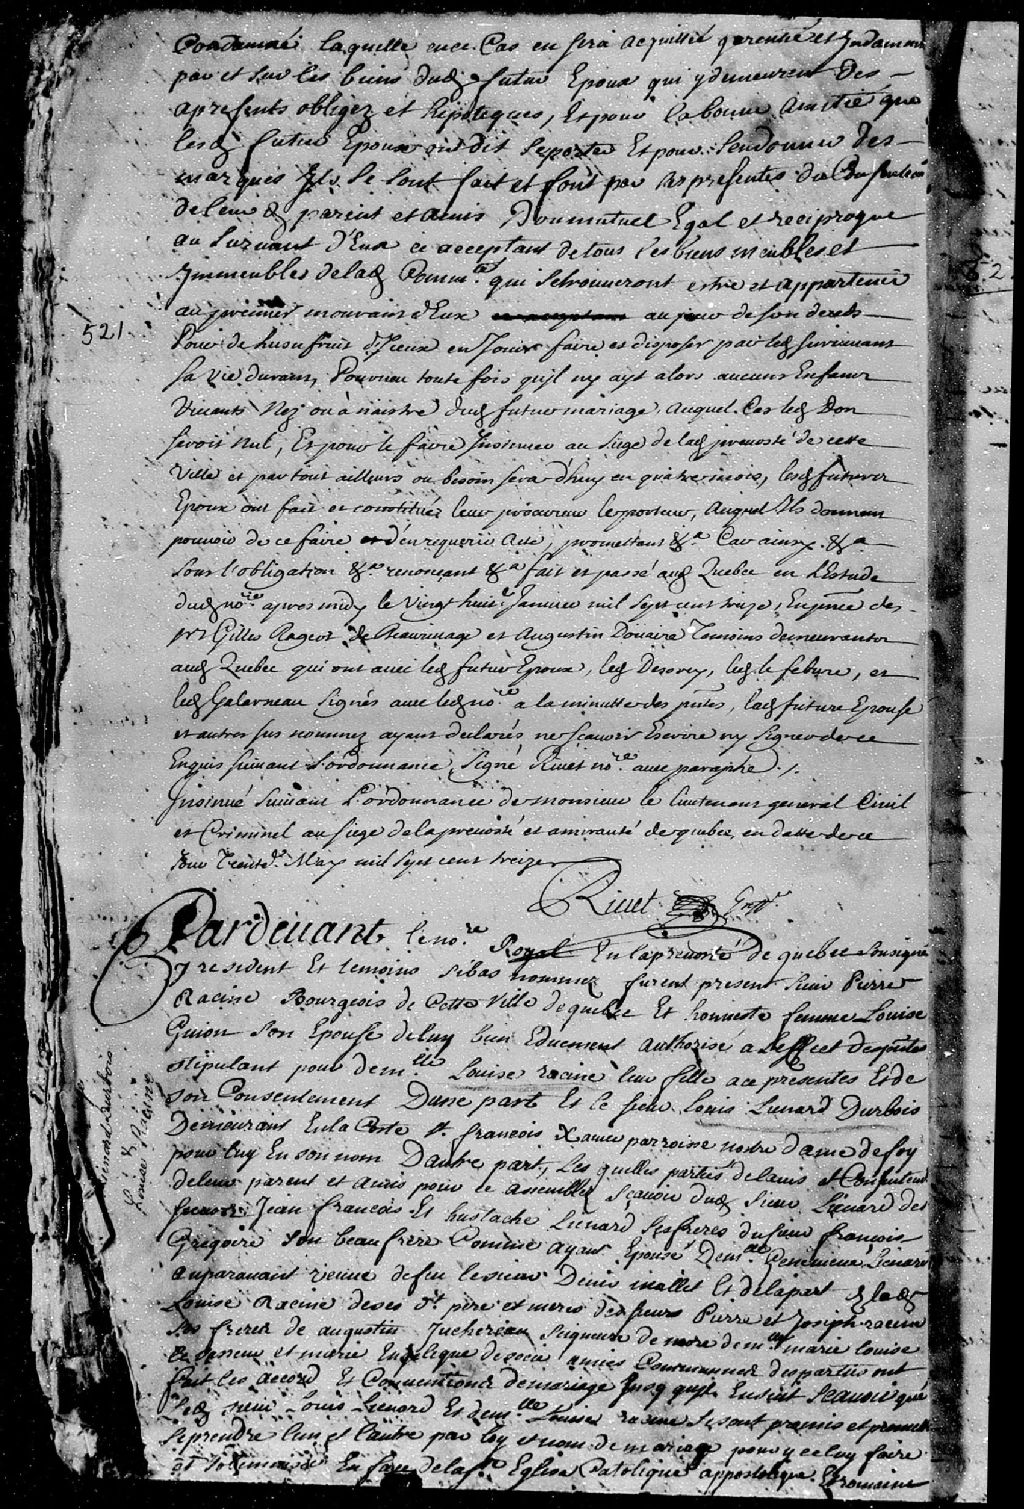 Condamné laquelle en ce Cas en sera acquittée garentie et Indamnisée
par et sur les biens dud futur Epoux qui y demeurent Des
apresents obligez et hipotequez, Et pour la bonne amitié que
lesd futur Epoux ont dit se porter Et pour sendonner des
marques Ils se sont fait et font par ces presentes du Consentem
de leurs d parens et amis Don mutuel Egal et reciproque
au Suruiuant d'Eux ce acceptant de tous les biens meubles et
Immeubles de lad Comm.té qui se trouueront estre et appartenir
au premier mourant d'Eux au jour de son deceds
521
Pour de l'usufruit d'Iceux en Jouir faire et disposer par led suruiuant
sa vie durant, Pourueu toute fois qu'il ny ayt alors aucuns Enfans
Viuants Nez ou à naistre dud futur mariage, auquel Cas led Don
seroit nul, Et pour le faire Insinuer au siege de lad preuosté de cette
Ville et par tout ailleurs ou besoin sera d'huy en quatre mois, lesd futurs
Epoux ont fait et constitué leur procureur le porteur, auquel Ils donnent
pouuoir de ce faire et d'en requerir Acte, promettant &a Car ainsy &a
Sous l'obligation &a renonçant &a fait et passé aud Quebec en L'Estude
dud no.re apres midy le Vingt huit.e Januier mil sept cent treize, En pnce des
srs Gilles Rageot de Beauriuage et Augustin Douaire Temoins demeurants
aud Quebec qui ont auec led futur Epoux, led Desery, led le febure, et
led Galarneau Signés auec led no.re a la minutte des pntes, lad future Epouse
et autres sus nommez ayant declarés ne scauoir Escrire ny Signer de ce
Enquis suiuant l'ordonnance, Signé Riuet no.re auec paraphe ./.
Insinué Suiuant L'ordonnance de monsieur le lieutenant general Ciuil
et Criminel au siege de la preuosté et amirauté de quebec, en datte de ce
Jour Trente.e May mil sept cent treize
Riuet Greff.r
Pardeuant le no.re Royal En la preuosté de quebec soussigné
Y resident Et temoins sibas nommez furent present sieur Pierre
Racine Bourgeois de Cette Ville de quebec Et honneste femme Louise
Guion son Epouse de luy bien Eduement authorisé a Leffect des pntes
stipulant pour dem.lle Louise racine leur fille a ce presentes Et de
son Consentement Dune part Et le sieur Louis Lienard Durbois
Demeurant En la Coste st. francois Xauier parroisse nostre dame de foy
pour luy En son nom Dautre part, Les quelles parties de lauis et Consentem
de leurs parent et amis pour ce assemblez sçauoir dud sieur Lienard des
sieurs Jean francois Et hustache Lienard ses freres du sieur francois
Gregoire son beau frere Comme ayant Epousé Dem.lle Geneuieue Lienard
auparauant veuue de feu le sieur Denis mallet Et de la part d lad
Louise Racine de ses d.t pere et mere des sieurs Pierre et Joseph racine
ses freres de augustin Juchereau seigneur de more dem.lle marie louise
et marie Engelique amies Communnes des parties ont
fait les accord Et Conuentions de mariage Jusq quy Ensuit scauoir que
led sieur Louis Lienard Et dem.lle Louise racine se sont promis et promett
se prendre lun et lautre par loy et nom de mariage pour y celuy faire
Et En face de la s.te Eglise Catolique appostolique Et romaine
Lienard durbois
Louise d Racine